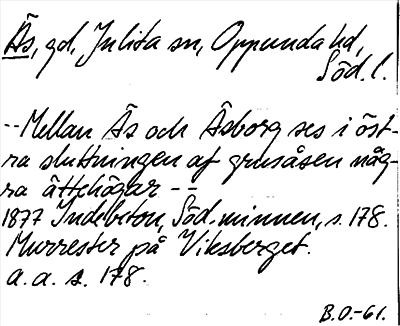 Äs, gd, Julita sn, Oppunda hd,
Söd. l.
-- Mellan Äs och Äsborg ses i öst-
ra sluttningen af grusåsen någ-
ra ättehögar --
1877 Indebetou, Söd. minnen, s. 178.
Murrester på Viksberget.
a. a. s. 178.
B.O.-61.